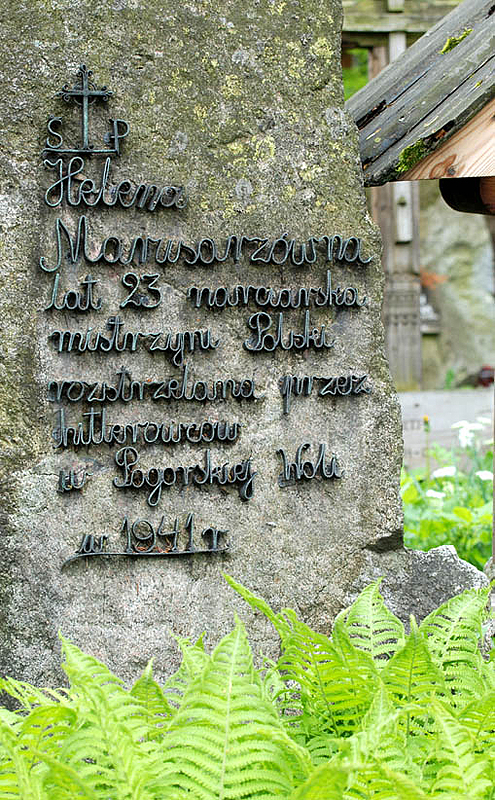 S P
Helena
Marusarzówna
lat 23 narciarska
mistrzyni Polski
rozstrzelana przez
hitlerowców
w Pogórskiej Woli
w 1941 r